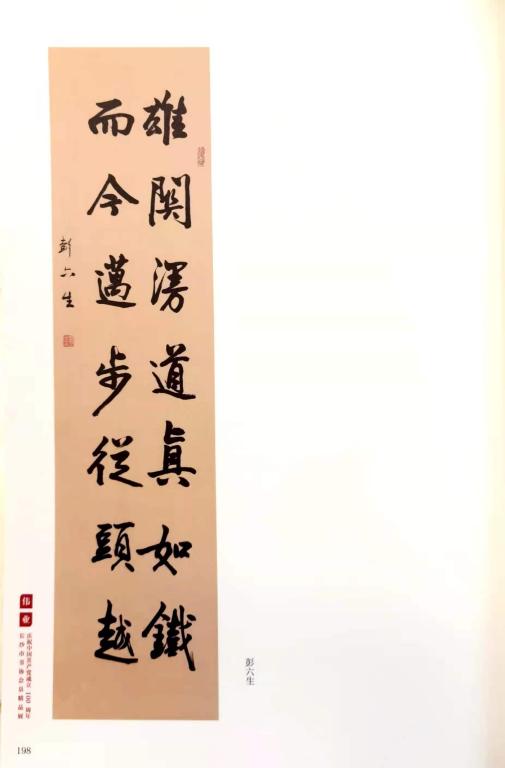 雄關漫道真如鐵
而今邁步從頭越
彭六生
彭六生
伟业
庆祝中国共产党成立100周年
长沙市书协会员精品展
198